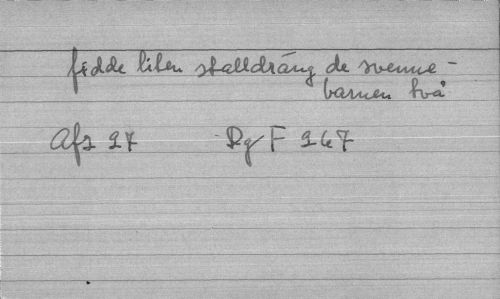 fedde liten stalldräng de svenne-
barnen två
Afz 27 Dg F 267